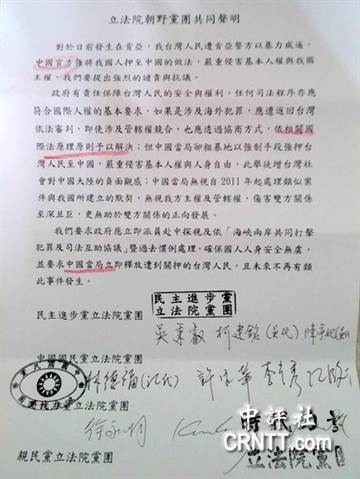 立法院朝野黨團共同聲明
對於日前發生在肯亞，我台灣人民遭肯亞警方以暴力威逼，
中國官方強將我國人押至中國的做法，嚴重侵害基本人權與我國
主權，我們要提出強烈的譴責與抗議。
政府有責任保障台灣人民的安全與權利，任何司法程序亦應
符合國際人權的基本要求，如果是涉及海外犯罪，應遣返回台灣
依法審判，即使涉及管轄權競合，也應透過協商方式，依相關國
際法原理原則予以解決；但中國當局卻粗暴地以強制手段強押台
灣人民至中國，嚴重侵害基本人權與人身自由，此舉徒增台灣社
會對中國大陸的負面觀感；中國當局無視自2011年起處理類似案
件與我國所建立的默契，無視我方主權及管轄權，傷害雙方關係
至深且巨，更無助於雙方關係的正向發展。
我們要求政府應立即派員赴中探視及依「海峽兩岸共同打擊
犯罪及司法互助協議」暨過去慣例處理，確保國人人身安全無虞，
並要求中國當局立即釋放遭到關押的台灣人民，且未來不再有類
此事件發生。
民主進步黨
立法院黨團
民主進步黨立法院黨團
柯建銘
中國國民黨立法院黨團
林德福
時代力量
立法院黨團
親民黨立法院黨團
中評社
CRNTT.com